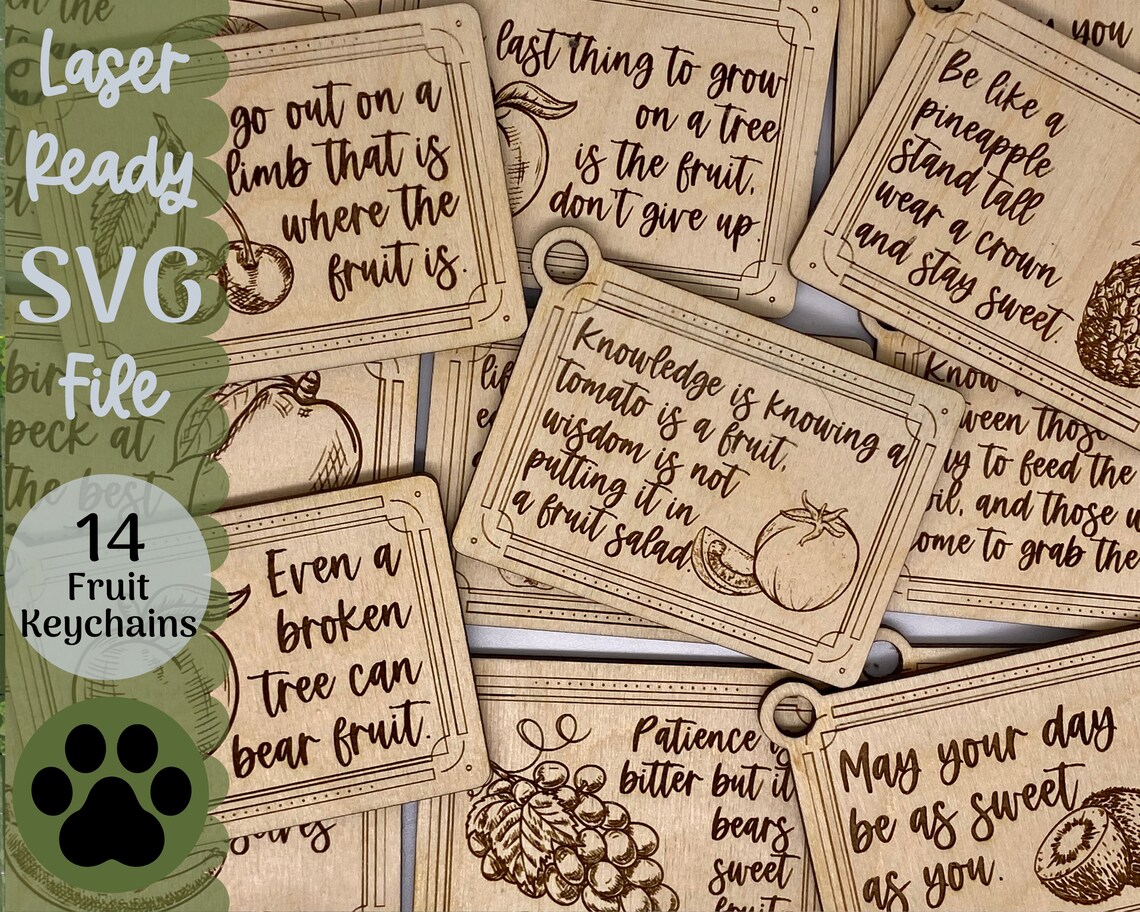 Laser
Ready
SVG
File
14
Fruit
Keychains
go out on a
limb that is
where the
fruit is.
last thing to grow
on a tree
is the fruit,
don't give up.
you
Be like a
pineapple
stand tall
wear a crown
and stay sweet.
Knowledge is knowing a
tomato is a fruit,
wisdom is not
putting it in
a fruit salad.
Know
those
to feed the
and those
to grab the
peck at
the best
Even a
broken
tree can
bear fruit.
Patience
bitter but it
bears
sweet
fruit
May your day
be as sweet
as you.